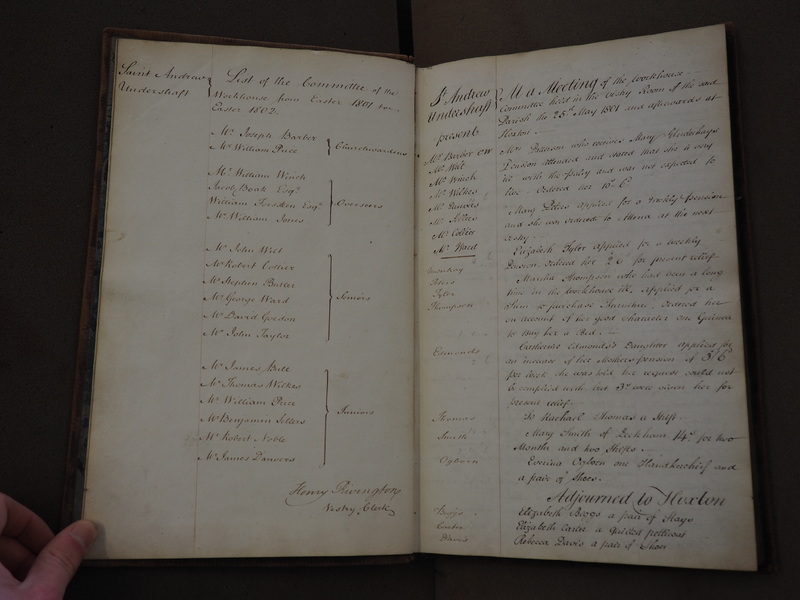 Saint Andrew
Undershaft
List of the Committee of the
Workhouse from Easter 1801 to
Easter 1802.
Mr. Joseph Barber
Mr. William Price
Churchwardens
Mr. William Winch
Jacob Boak Esqr.
William Esqr.
Mr. William Jones
Overseers
Mr. John Wilt
Mr. Robert Collier
Mr. Stephen Butler
Mr. George Ward
Mr. David Gordon
Mr. John Taylor
Seniors
Mr. James Bull
Mr. Thomas Wilkes
Mr. William Price
Mr. Benjamin Sellers
Mr. Robert Noble
Mr. James Danvers
Juniors
Henry Rivington
Vestry Clerk
St. Andrew
Undershaft
present
Mr. Barber CW
Mr. Wilt
Mr. Winch
Mr. Wilkes
Mr. Danvers
Mr. Collier
Mr. Ward
At a Meeting of the Workhouse
Committee held in the Vestry Room of the said
Parish the 25th. May 1801 and afterwards at
Hoxton.
who receives Mary Underhays
Pension attended and stated that she is very
ill with the palsy and was not expected to
live. Ordered her 10s. 6
Peters
Mary Peters applied for a weekly Pension
and she was ordered to Attend at the next
Vestry.
Tyler
Elizabeth Tyler applied for a weekly
Pension ordered her 2s 6 for present relief
Thompson
Martha Thompson who had been a long
time in the Workhouse applied for a
Sum to purchase Furniture, ordered her
on account of her good character one Guinea
to buy her a Bed.
Edmonds
Catherine Edmonds's Daughter applied for
an increase of her Mothers pension of 3s 6
per week she was told her request could not
be complied with but 3s. were given her for
present relief.
Thomas
To Rachael Thomas a Shift.
Smith
Mary Smith of Peckham 14s. for two
Months and two Shifts.
Ogborn
Ogborn one Handkerchief and
a pair of Shoes.
Adjourned to Hoxton
Biggs
Elizabeth Biggs a pair of Stays
Carter
Elizabeth Carter a quilted petticoat
Davis
Rebecca Davis a pair of Shoes